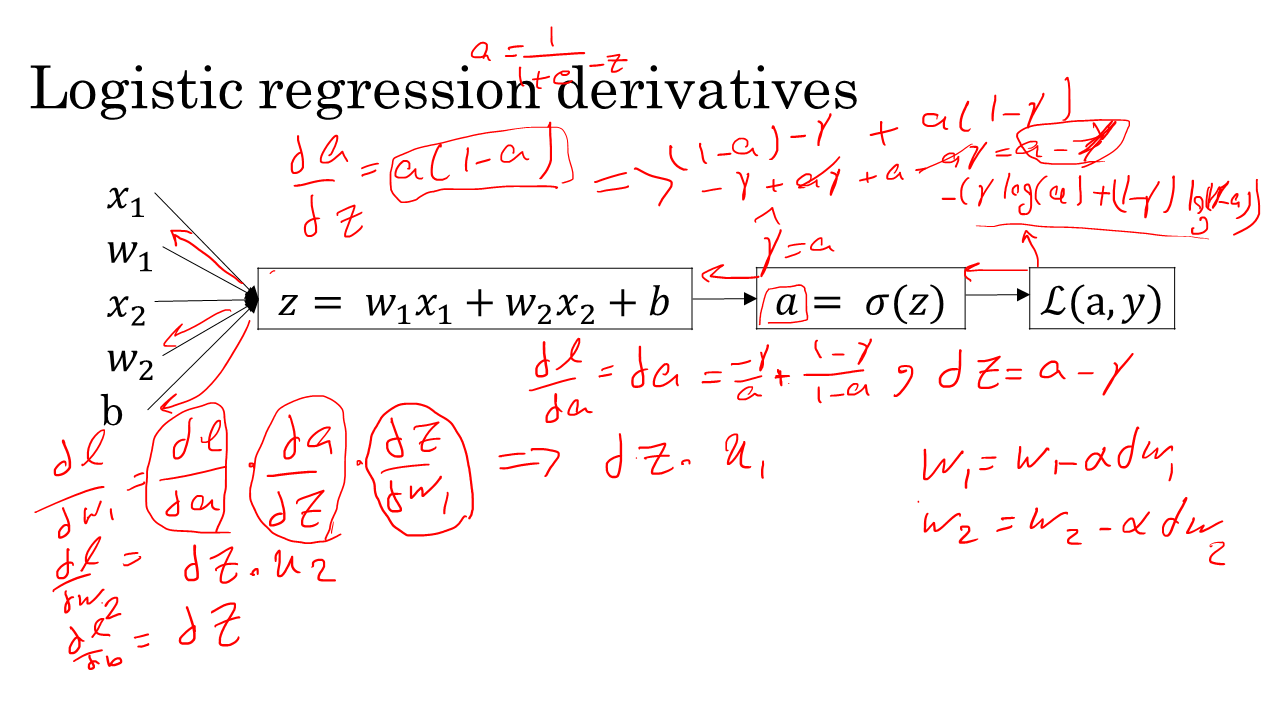 a = 1/(1+e^-z)
Logistic regression derivatives
da/dz = a(1-a) => (1-a)-y + a(1-y)
-y + ay + a - ay = a - y
-(y log(a) + (1-y) log(1-a))
x₁
w₁
x₂
w₂
b
ŷ = a
z = w₁x₁ + w₂x₂ + b
a = σ(z)
ℒ(a, y)
dl/da = da = -y/a + 1-y/1-a , dz = a - y
dl/dw₁ = dl/da · da/dz · dz/dw₁ => dz · x₁
dl/dw₂ = dz · x₂
dl/db = dz
w₁ = w₁ - α dw₁
w₂ = w₂ - α dw₂